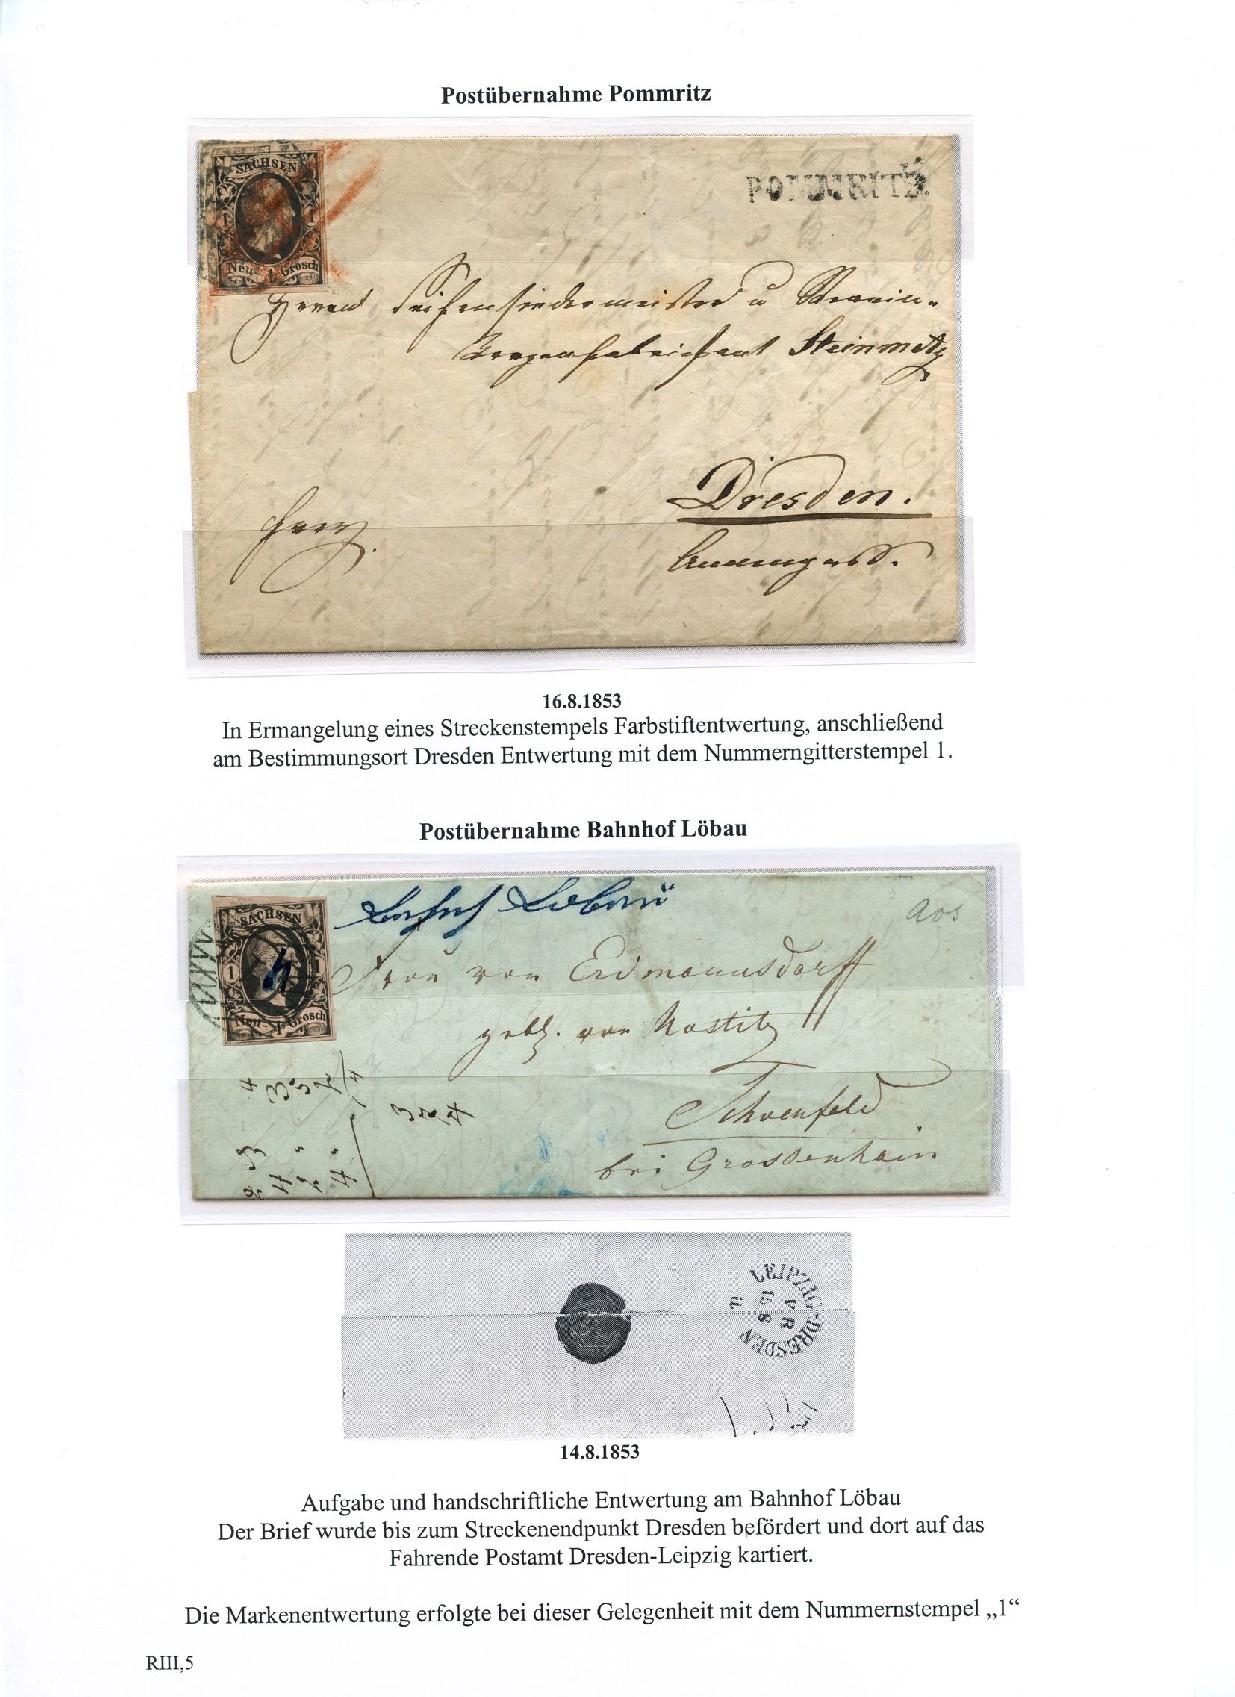 Postübernahme Pommritz
SACHSEN
1 1
Neu- 1 Grosch
POMMRITZ.
Herrn Seifensiedermeister u
Steinmetz
Dresden.
16.8.1853
In Ermangelung eines Streckenstempels Farbstiftentwertung, anschließend
am Bestimmungsort Dresden Entwertung mit dem Nummerngitterstempel 1.
Postübernahme Bahnhof Löbau
Bahnhof Löbau
SACHSEN
1 1
Neu- 1 Grosch
von Erdmannsdorff
gebh. von Nostitz
Schoenfeld
bei Grossenhain
LEIPZIG-DRESDEN
15 8
14.8.1853
Aufgabe und handschriftliche Entwertung am Bahnhof Löbau
Der Brief wurde bis zum Streckenendpunkt Dresden befördert und dort auf das
Fahrende Postamt Dresden-Leipzig kartiert.
Die Markenentwertung erfolgte bei dieser Gelegenheit mit dem Nummernstempel „1“
RIII,5